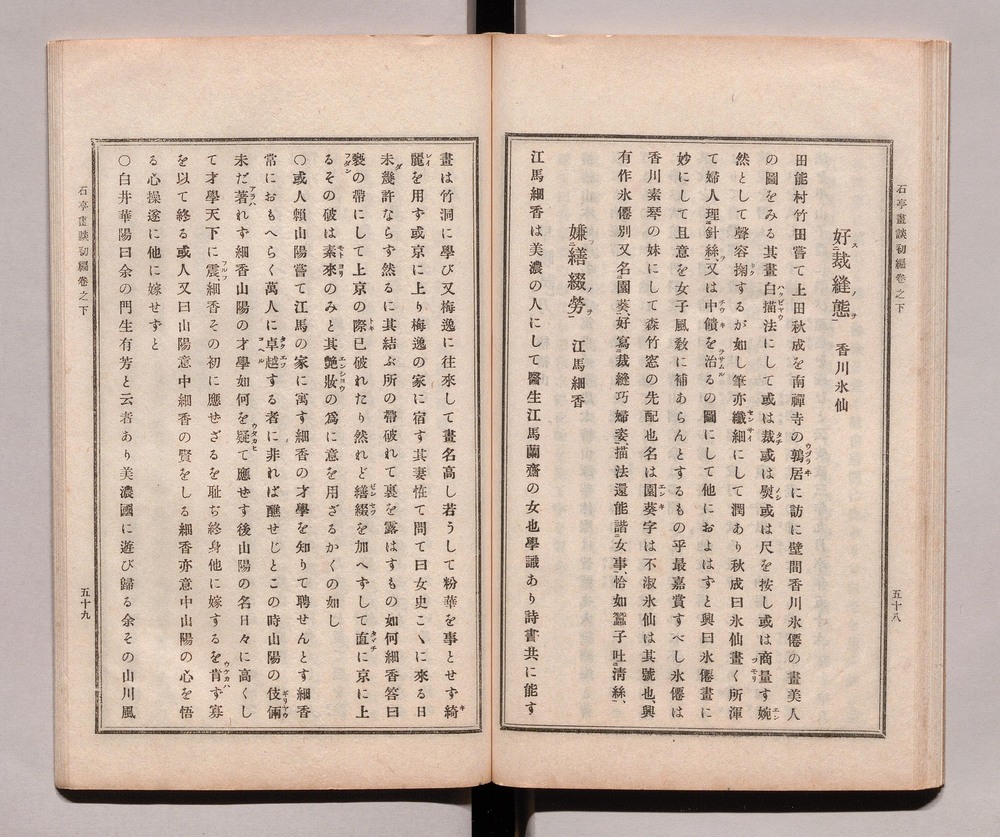 石亭畫談初編卷之下
五十八
好裁縫態 香川氷仙
田能村竹田嘗て上田秋成を南禪寺の鶉居に訪に壁間香川氷僊の畫美人
の圖をみる其畫白描法にして或は裁或は熨或は尺を按し或は商量す婉
然として聲容掬するが如し筆亦纖細にして潤あり秋成曰氷仙畫く所渾
て婦人理針絲、又は中饋を治るの圖にして他におよはすと輿曰氷僊畫に
妙にして且意を女子風敎に補あらんとするもの乎最嘉賞すべし氷僊は
香川素琴の妹にして森竹窓の先配也名は園葵字は不淑氷仙は其號也輿
有作氷僊別又名園葵、好寫裁縫巧婦姿、描法還能諧女事、恰如蠶子吐淸絲、
嫌繕綴勞 江馬細香
江馬細香は美濃の人にして醫生江馬蘭齋の女也學識あり詩書共に能す
畫は竹洞に學び又梅逸に往來して畫名高し若うして粉華を事とせず綺
麗を用す或京に上り梅逸の家に宿す其妻恠て問て曰女史こゝに來る日
未幾許ならす然るに其結ぶ所の帶破れて裏を露はすもの如何細香答曰
褻の帶にして上京の際已破れたり然れど繕綴を加へすして直に京に上
るその破は素來のみと其艷妝の爲に意を用ざるかくの如し
〇或人賴山陽嘗て江馬の家に寓す細香の才學を知りて聘せんとす細香
常におもへらく萬人に卓越する者に非れば醮せじとこの時山陽の伎倆
未だ著れす細香山陽の才學如何を疑て應せす後山陽の名日々に高くし
て才學天下に震細香その初に應せざるを耻ぢ終身他に嫁するを肯ず寡
を以て終る或人又曰山陽意中細香の賢をしる細香亦意中山陽の心を悟
る心操遂に他に嫁せずと
〇白井華陽曰余の門生有芳と云者あり美濃國に遊び歸る余その山川風
石亭畫談初編卷之下
五十九